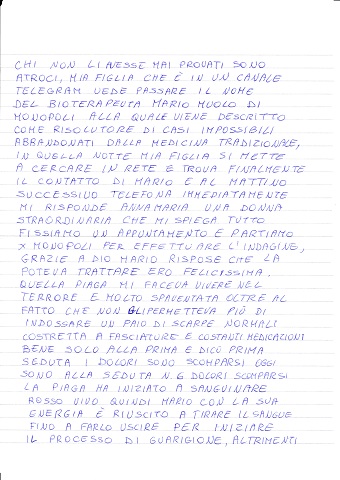 CHI NON LI AVESSE MAI PROVATI SONO
ATROCI, MIA FIGLIA CHE È IN UN CANALE
TELEGRAM VEDE PASSARE IL NOME
DEL BIOTERAPEUTA MARIO MUOLO DI
MONOPOLI ALLA QUALE VIENE DESCRITTO
COME RISOLUTORE DI CASI IMPOSSIBILI
ABBANDONATI DALLA MEDICINA TRADIZIONALE,
IN QUELLA NOTTE MIA FIGLIA SI METTE
A CERCARE IN RETE E TROVA FINALMENTE
IL CONTATTO DI MARIO E AL MATTINO
SUCCESSIVO TELEFONA IMMEDIATAMENTE
MI RISPONDE ANNAMARIA UNA DONNA
STRAORDINARIA CHE MI SPIEGA TUTTO
FISSIAMO UN APPUNTAMENTO E PARTIAMO
X MONOPOLI PER EFFETTUARE L'INDAGINE,
GRAZIE A DIO MARIO RISPOSE CHE LA
POTEVA TRATTARE ERO FELICISSIMA.
QUELLA PIAGA MI FACEVA VIVERE NEL
TERRORE E MOLTO SPAVENTATA OLTRE AL
FATTO CHE NON GLI PERMETTEVA PIÙ DI
INDOSSARE UN PAIO DI SCARPE NORMALI
COSTRETTA A FASCIATURE E COSTANTI MEDICAZIONI
BENE SOLO ALLA PRIMA E DICO PRIMA
SEDUTA I DOLORI SONO SCOMPARSI OGGI
SONO ALLA SEDUTA N.6 DOLORI SCOMPARSI
LA PIAGA HA INIZIATO A SANGUINARE
ROSSO VIVO QUINDI MARIO CON LA SUA
ENERGIA È RIUSCITO A TIRARE IL SANGUE
FINO A FARLO USCIRE PER INIZIARE
IL PROCESSO DI GUARIGIONE, ALTRIMENTI